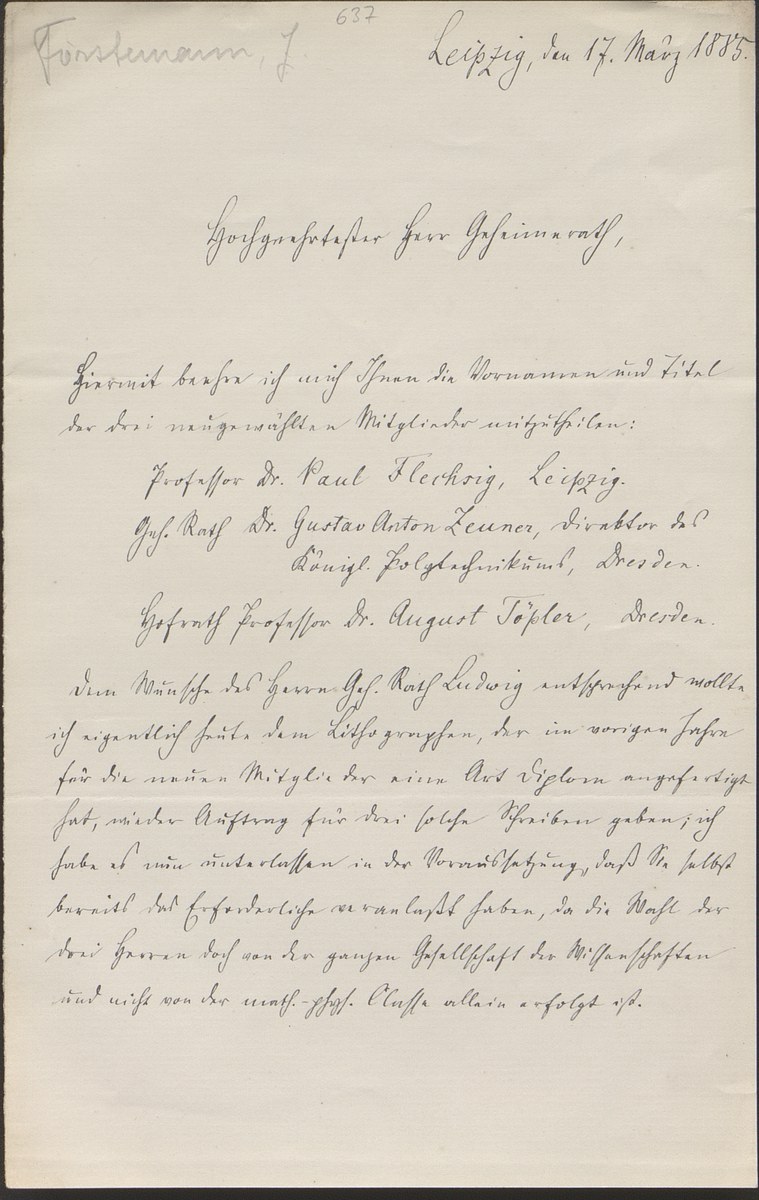 637
Förstemann, J
Leipzig, den 17. März 1885.
Hochgeehrtester Herr Geheimerath,
Hiermit beehre ich mich Ihnen die Vornamen und Titel
der drei neugewählten Mitglieder mitzutheilen:
Professor Dr. Paul Flechsig, Leipzig.
Geh. Rath Dr. Gustav Anton Zeuner, Direktor des
Königl. Polytechnikums, Dresden.
Hofrath Professor Dr. August Töpler, Dresden.
Dem Wunsche des Herrn Geh. Rath Ludwig entsprechend wollte
ich eigentlich heute dem Lithographen, der im vorigen Jahre
für die neuen Mitglieder eine Art Diplom angefertigt
hat, wieder Auftrag für drei solche Schreiben geben; ich
habe es nun unterlassen in der Voraussetzung, daß Sie selbst
bereits das Erforderliche veranlaßt haben, da die Wahl der
drei Herren doch von der ganzen Gesellschaft der Wissenschaften
und nicht von der math.-phys. Classe allein erfolgt ist.